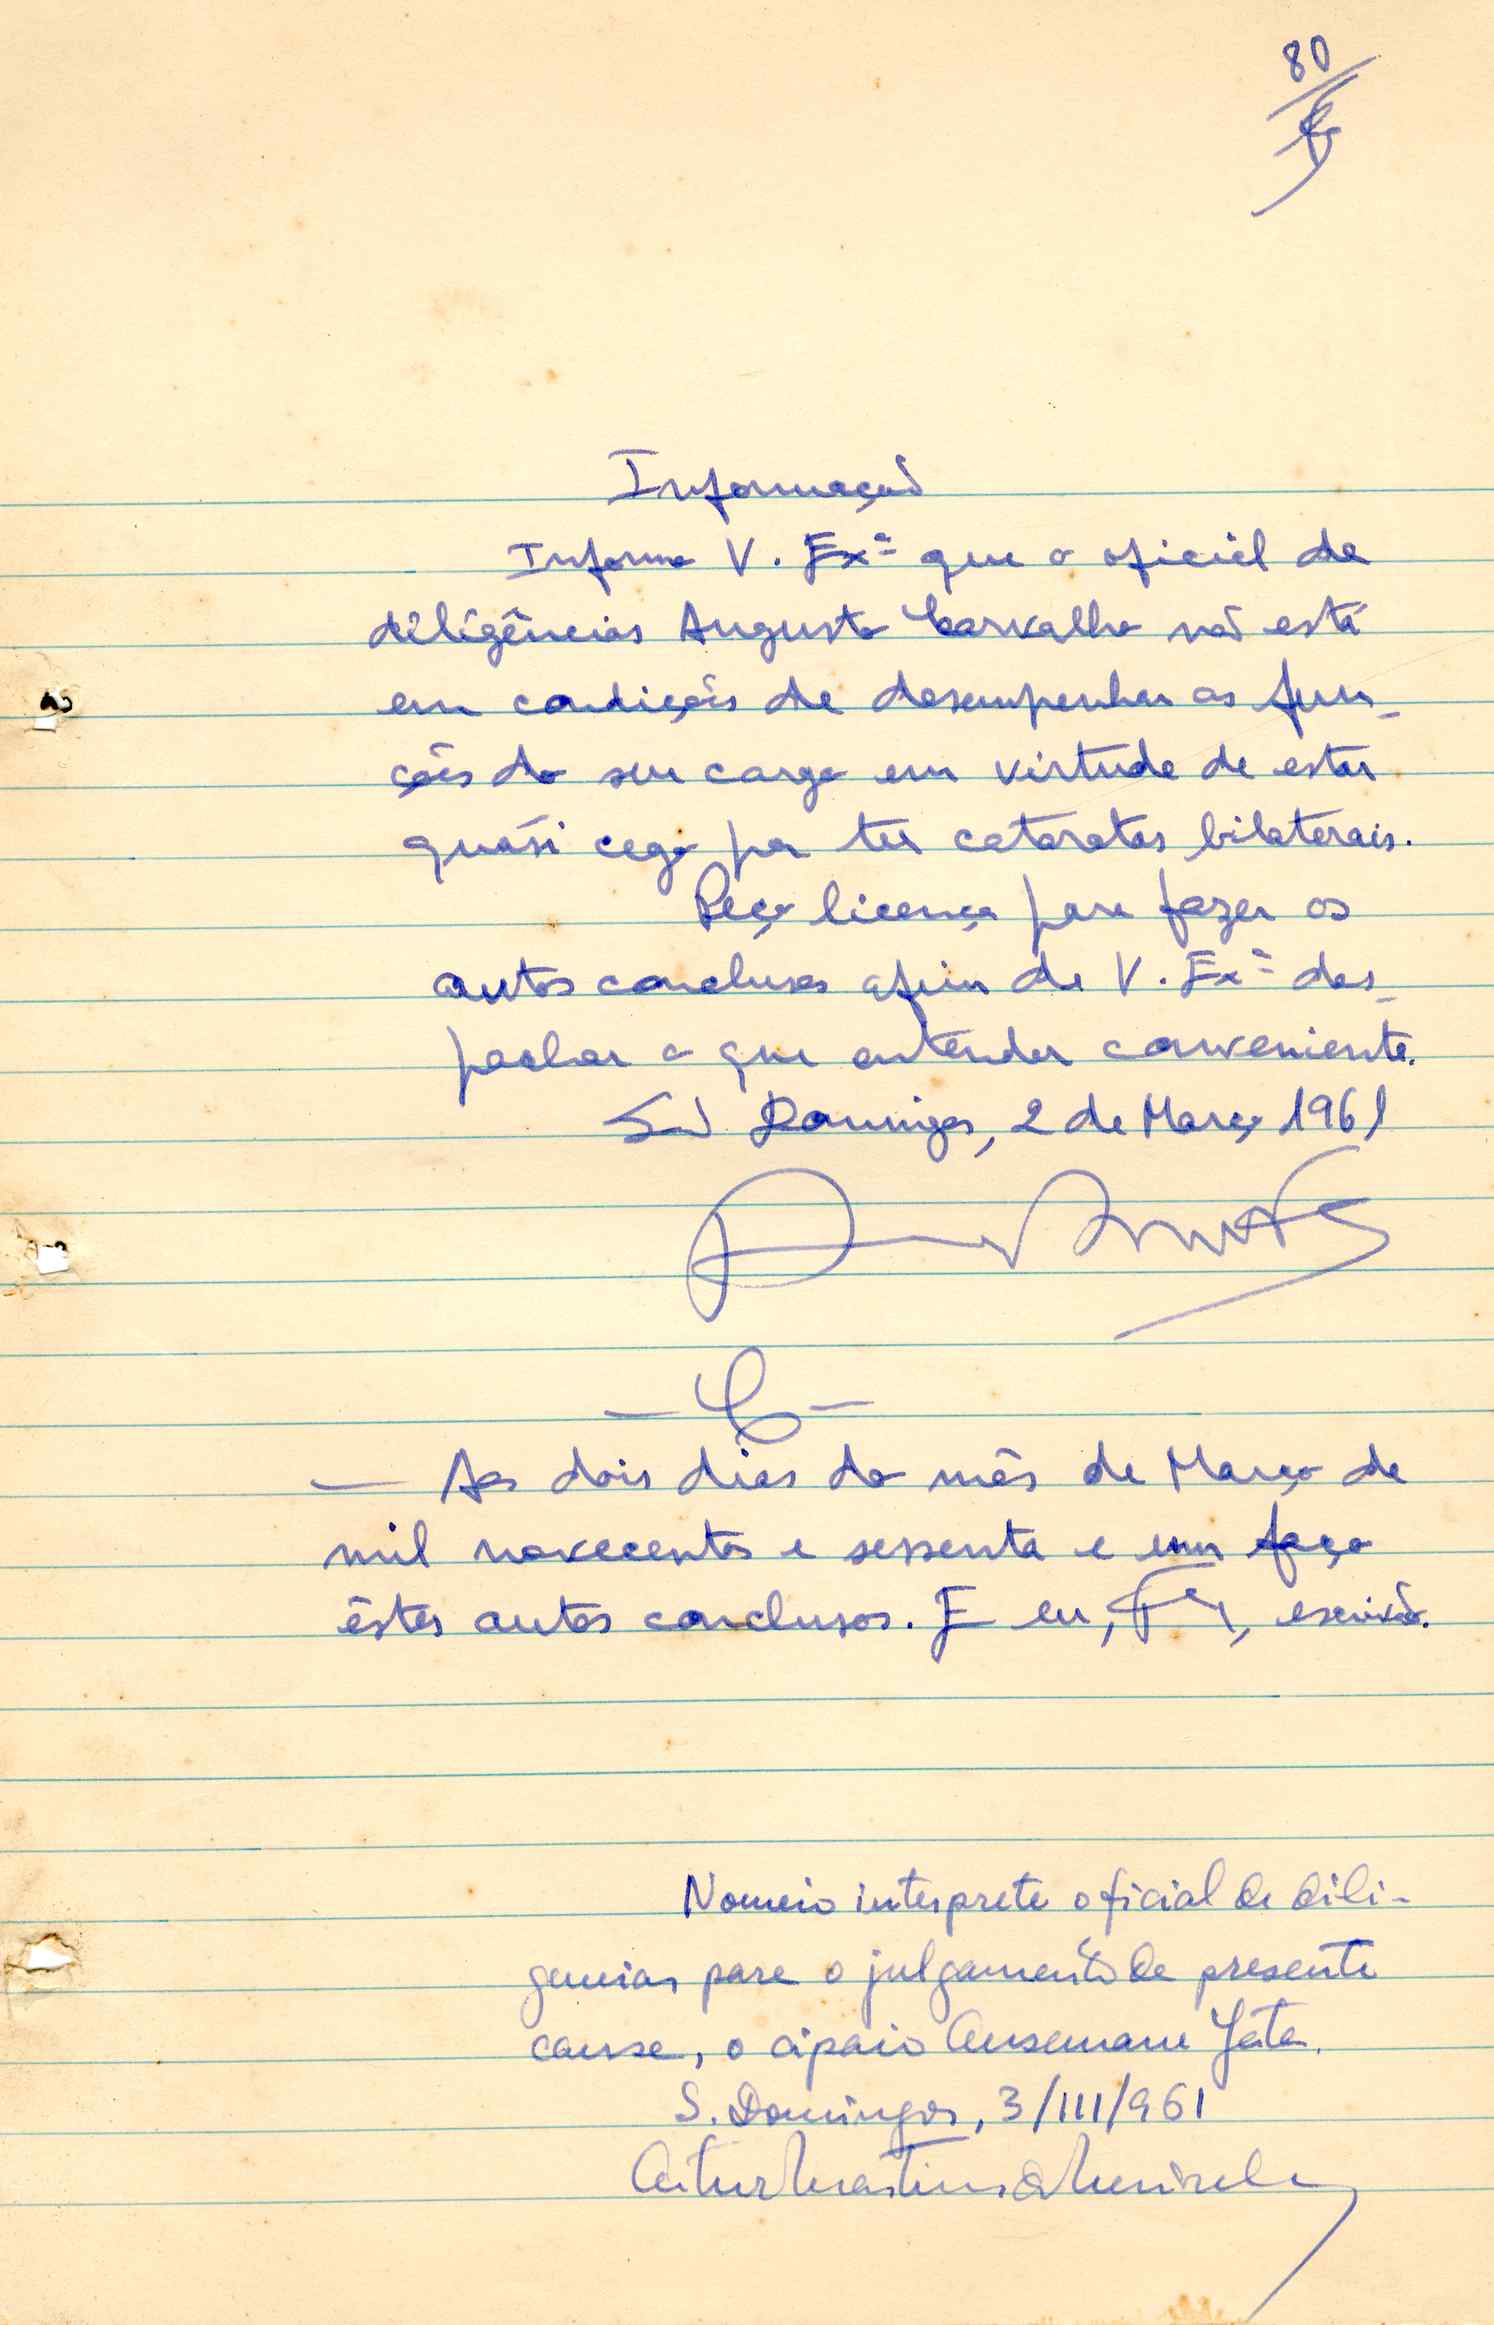 80
Informação
Informo V. Exª que o oficial de
diligências Augusto Carvalho não está
em condições de desempenhar as fun-
ções do seu cargo em virtude de estar
quási cego por ter cataratas bilaterais.
Peço licença para fazer os
autos conclusos afim de V. Exª des-
pachar o que entender conveniente.
São Domingos, 2 de Março 1961
— C —
— Aos dois dias do mês de Março de
mil novecentos e sessenta e um faço
êstes autos conclusos. E eu, , escrivão.
Nomeio interprete oficial de dili-
gencias para o julgamento da presente
causa, o cipaio Ansemane Jata.
S. Domingos, 3/III/961
Artur Martins de Meireles